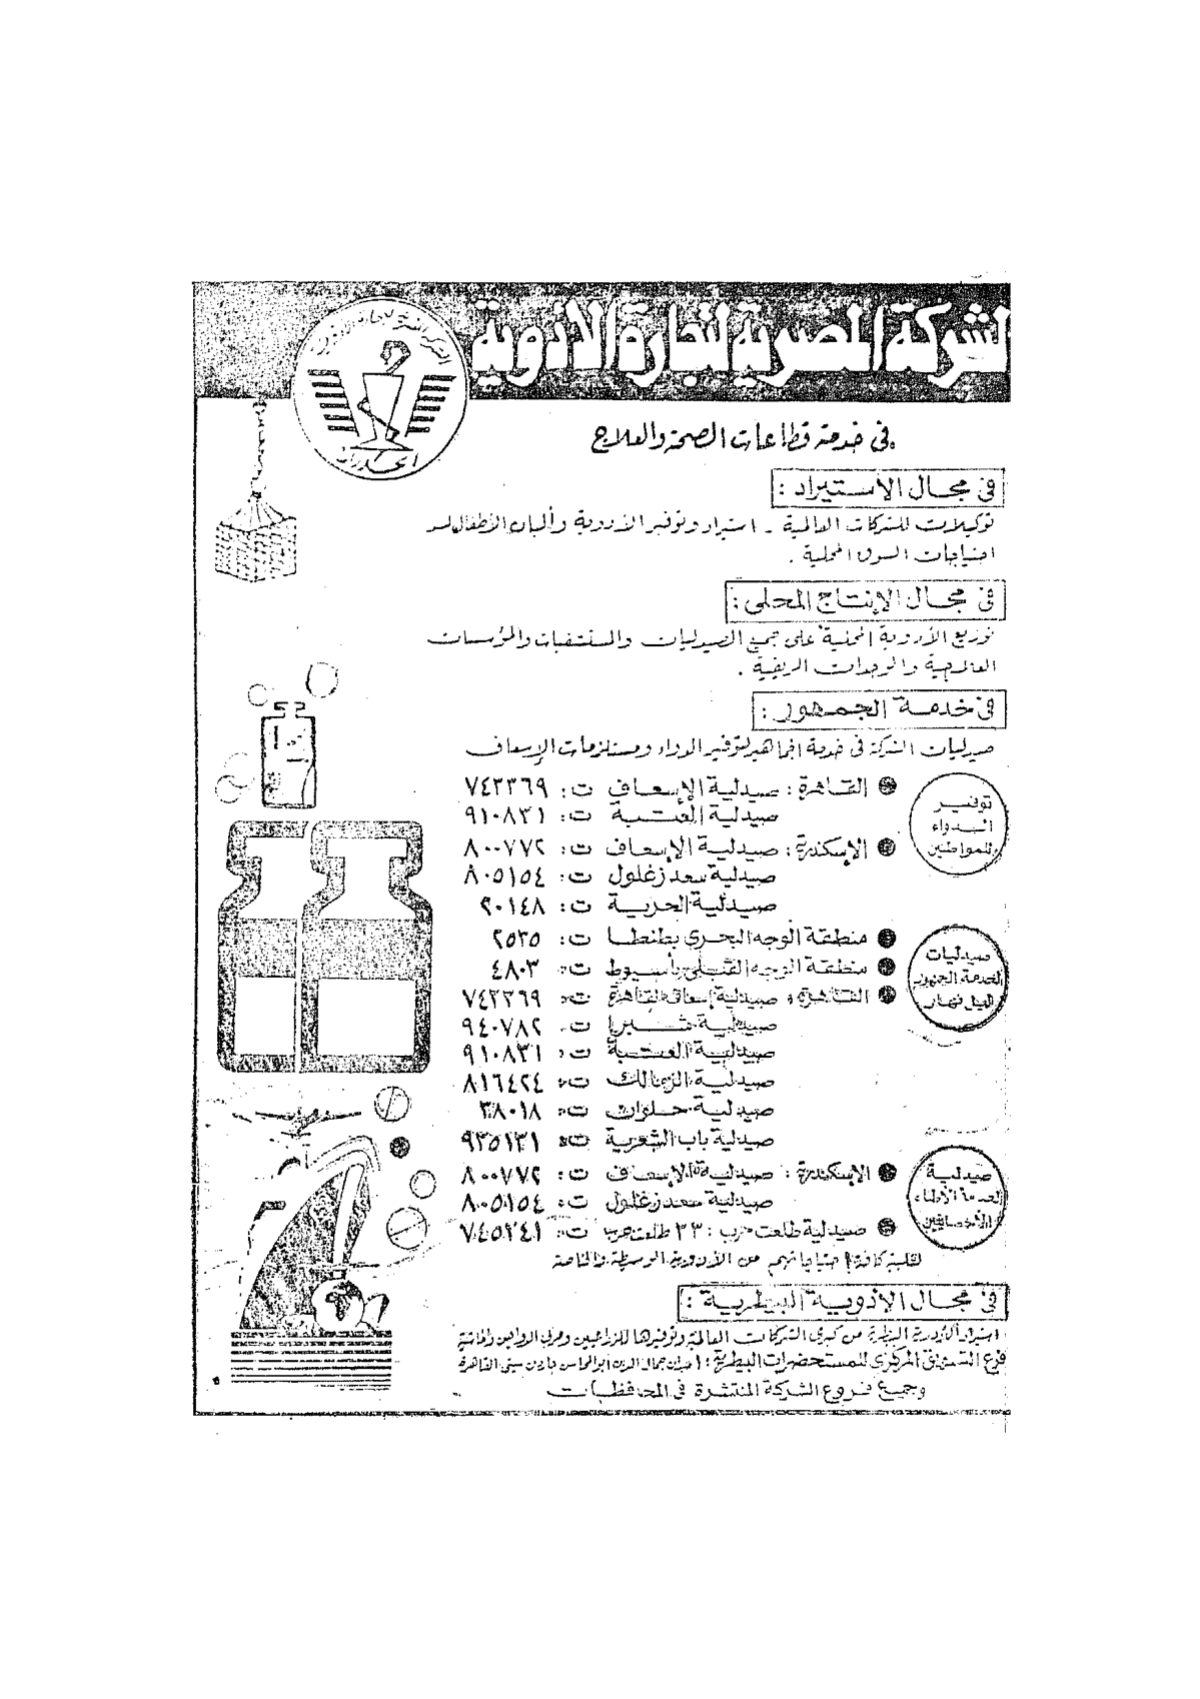 الشركة المصرية لتجارة الأدوية
في خدمة قطاعات الصحة والعلاج
في مجال الأستيراد :
توكيلات للشركات العالمية - استيراد وتوفير الأدوية وألبان الأطفال لسد
احتياجات السوق المحلية .
في مجال الإنتاج المحلى :
توزيع الأدوية المحلية على جميع الصيدليات والمستشفيات والمؤسسات
العلاجية والوحدات الريفية .
في خدمة الجمهور :
صيدليات الشركة في خدمة الجماهير لتوفير الدواء ومستلزمات الإسعاف
توفير
الدواء
للمواطنين
القاهرة : صيدلية الإسعاف ت : ٧٤٣٣٦٩
صيدلية العتبة ت : ٩١٠٨٣١
الإسكندرية : صيدلية الإسعاف ت : ٨٠٠٧٧٢
صيدلية سعد زغلول ت : ٨٠٥١٥٤
صيدلية الحرية ت : ٢٠١٤٨
صيدليات
لخدمة الجمهور
ليل نهار
منطقة الوجه البحري بطنطا ت : ٢٥٣٥
منطقة الوجه القبلى بأسيوط ت : ٤٨٠٣
القاهرة : صيدلية إسعاف القاهرة ت : ٧٤٣٣٦٩
صيدلية شبرا ت : ٩٤٠٧٨٢
صيدلية العتبة ت : ٩١٠٨٣١
صيدلية الزمالك ت : ٨١٦٤٢٤
صيدلية حلوان ت : ٣٨٠١٨
صيدلية باب الشعرية ت : ٩٣٥١٣١
صيدلية
لخدمة الأطباء
الأخصائيين
الإسكندرية : صيدلية الإسعاف ت : ٨٠٠٧٧٢
صيدلية سعد زغلول ت : ٨٠٥١٥٤
صيدلية طلعت حرب : ٣٣ طلعت حرب ت : ٧٤٥٢٤١
لتلبية كافة احتياجاتهم من الأدوية الوسيطة والخاصة
في مجال الأدوية البيطرية :
استيراد الأدوية البيطرية من كبرى الشركات العالمية وتوفيرها للزراعيين ومربى الدواجن والماشية
فرع التسويق المركزى للمستحضرات البيطرية : ١ ميدان جمال الدين أبو المحاسن جاردن سيتى القاهرة
وجميع فروع الشركة المنتشرة في المحافظات